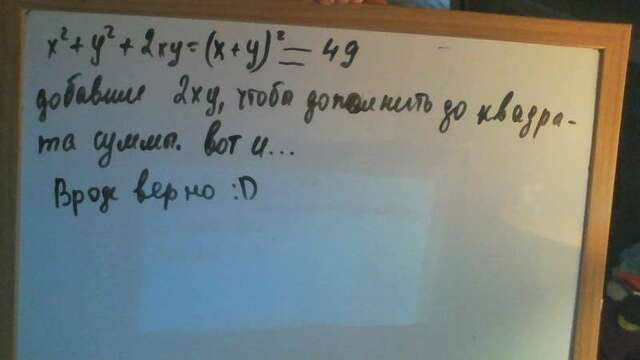 x² + y² + 2xy = (x+y)² = 49
добавили 2xy, чтоба дополнить до квадра-
та суммы. вот и...
Вроде верно :D